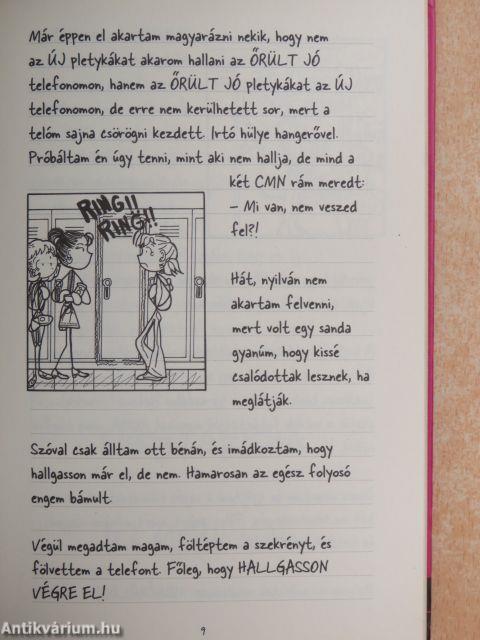 Már éppen el akartam magyarázni nekik, hogy nem
az ÚJ pletykákat akarom hallani az ŐRÜLT JÓ
telefonomon, hanem az ŐRÜLT JÓ pletykákat az ÚJ
telefonomon, de erre nem kerülhetett sor, mert a
telóm sajna csörögni kezdett. Irtó hülye hangerővel.
Próbáltam én úgy tenni, mint aki nem hallja, de mind a
két CMN rám meredt:
– Mi van, nem veszed
fel?!
RING!!
RING!!
Hát, nyilván nem
akartam felvenni,
mert volt egy sanda
gyanúm, hogy kissé
csalódottak lesznek, ha
meglátják.
Szóval csak álltam ott bénán, és imádkoztam, hogy
hallgasson már el, de nem. Hamarosan az egész folyosó
engem bámult.
Végül megadtam magam, föltéptem a szekrényt, és
fölvettem a telefont. Főleg, hogy HALLGASSON
VÉGRE EL!
9
Antikvárium.hu